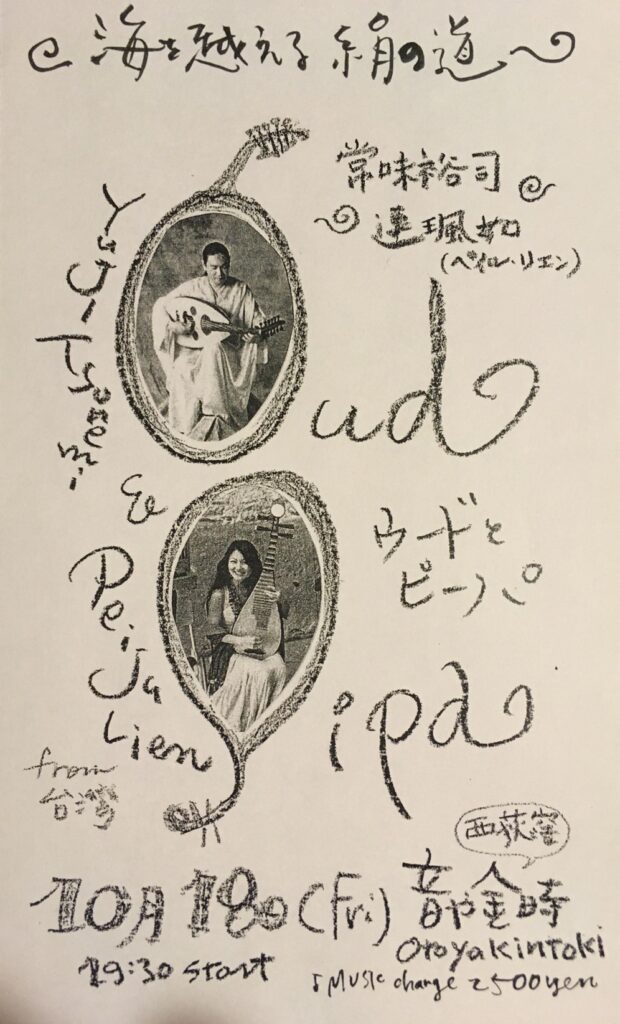 海を越える絹の道
常味裕司
連珮如
(ペイルー・リエン)
Yuji Tsunemi
&
Pei Ju Lien
from
台湾
ud
ウードと
ピーパ
ipa
西荻窪
10月18日(Fri)
音や金時
otoyakintoki
19:30 start
♪Music charge 2500yen